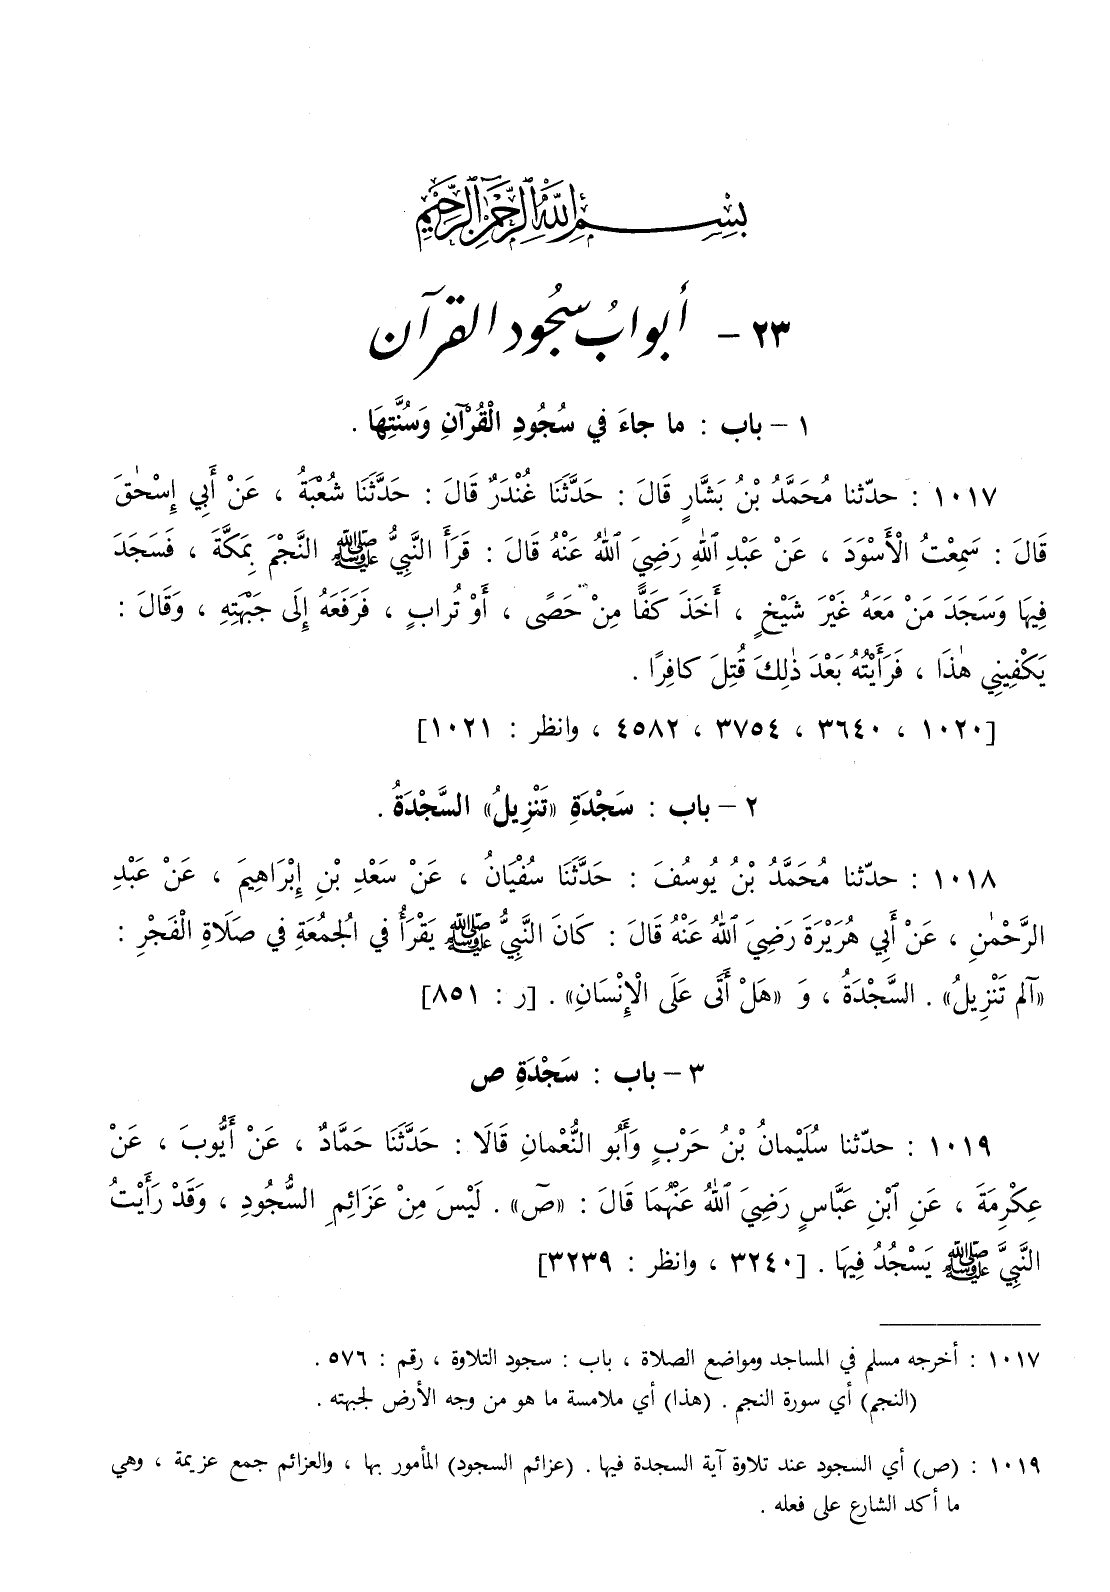 بِسْمِ اللهِ الرَّحْمٰنِ الرَّحِيمِ
٢٣ - أبوابُ سجُود القرآن
١ - باب : ما جاءَ في سُجُودِ الْقُرْآنِ وَسُنَّتِهَا .
١٠١٧ : حدّثنا مُحَمَّدُ بْنُ بَشَّارٍ قَالَ : حَدَّثَنَا غُنْدَرٌ قَالَ : حَدَّثَنَا شُعْبَةُ ، عَنْ أَبِي إِسْحٰقَ
قَالَ : سَمِعْتُ الْأَسْوَدَ ، عَنْ عَبْدِ ٱللهِ رَضِيَ ٱللهُ عَنْهُ قَالَ : قَرَأَ النَّبِيُّ ﷺ النَّجْمَ بِمَكَّةَ ، فَسَجَدَ
فِيهَا وَسَجَدَ مَنْ مَعَهُ غَيْرَ شَيْخٍ ، أَخَذَ كَفًّا مِنْ حَصًى ، أَوْ تُرابٍ ، فَرَفَعَهُ إِلَى جَبْهَتِهِ ، وَقَالَ :
يَكْفِينِي هٰذَا ، فَرَأَيْتُهُ بَعْدَ ذٰلِكَ قُتِلَ كافِرًا .
[١٠٢٠ ، ٣٦٤٠ ، ٣٧٥٤ ، ٤٥٨٢ ، وانظر : ١٠٢١]
٢ - باب : سَجْدَةِ «تَنْزِيلُ» السَّجْدَةُ .
١٠١٨ : حدّثنا مُحَمَّدُ بْنُ يُوسُفَ : حَدَّثَنَا سُفْيَانُ ، عَنْ سَعْدِ بْنِ إِبْرَاهِيمَ ، عَنْ عَبْدِ
الرَّحْمٰنِ ، عَنْ أَبِي هُرَيْرَةَ رَضِيَ ٱللهُ عَنْهُ قَالَ : كَانَ النَّبِيُّ ﷺ يَقْرَأُ في الجُمُعَةِ في صَلَاةِ الْفَجْرِ :
«آلم تَنْزِيلُ» . السَّجْدَةُ ، وَ «هَلْ أَتَى عَلَى الْإِنْسَانِ» . [ر : ٨٥١]
٣ - باب : سَجْدَةِ ص
١٠١٩ : حدّثنا سُلَيْمانُ بْنُ حَرْبٍ وَأَبُو النُّعْمانِ قَالَا : حَدَّثَنَا حَمَّادٌ ، عَنْ أَيُّوبَ ، عَنْ
عِكْرِمَةَ ، عَنِ ٱبْنِ عَبَّاسٍ رَضِيَ ٱللهُ عَنْهُمَا قَالَ : «صٓ» . لَيْسَ مِنْ عَزَائِمِ السُّجُودِ ، وَقَدْ رَأَيْتُ
النَّبِيَّ ﷺ يَسْجُدُ فِيهَا . [٣٢٤٠ ، وانظر : ٣٢٣٩]
١٠١٧ : أخرجه مسلم في المساجد ومواضع الصلاة ، باب : سجود التلاوة ، رقم : ٥٧٦ .
(النجم) أي سورة النجم . (هذا) أي ملامسة ما هو من وجه الأرض لجبهته .
١٠١٩ : (ص) أي السجود عند تلاوة آية السجدة فيها . (عزائم السجود) المأمور بها ، والعزائم جمع عزيمة ، وهي
ما أكد الشارع على فعله .